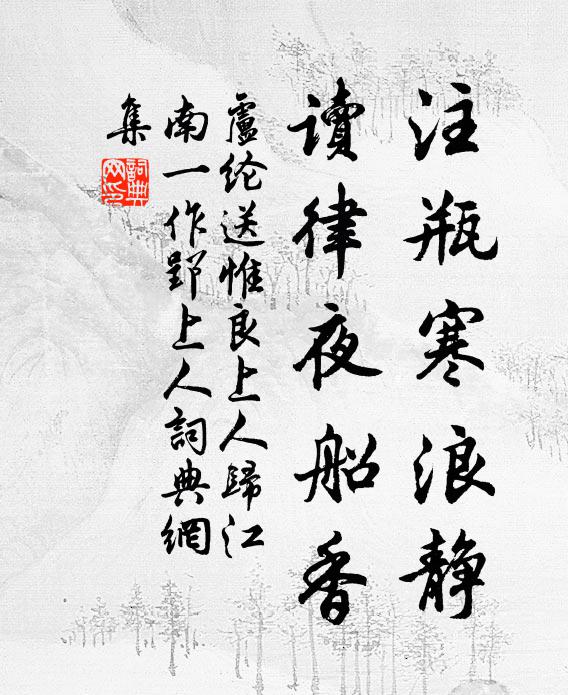 注瓶寒浪静
讀律夜船香
盧纶送惟良上人歸江
南一作郢上人詞典網
集
詞典
网印